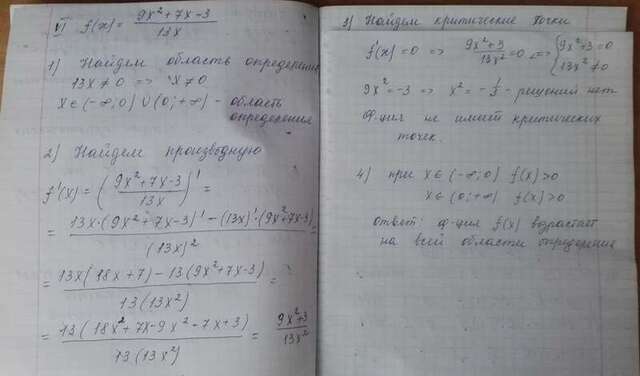 VI f(x) = (9x² + 7x - 3)/(13x)
1) Найдем область определения
13x ≠ 0 => x ≠ 0
x ∈ (-∞; 0) ∪ (0; +∞) - область
определения
2) Найдем производную
f'(x) = ((9x² + 7x - 3)/(13x))' =
= (13x·(9x² + 7x - 3)' - (13x)'·(9x² + 7x - 3))/((13x)²) =
= (13x(18x + 7) - 13(9x² + 7x - 3))/(13(13x²)) =
= (13(18x² + 7x - 9x² - 7x + 3))/(13(13x²)) = (9x² + 3)/(13x²)
3) Найдем критические точки
f'(x) = 0 => (9x² + 3)/(13x²) = 0 <=> {9x² + 3 = 0
{13x² ≠ 0
9x² = -3 => x² = -1/3 - решений нет
Ф-ция не имеет критических
точек.
4) при x ∈ (-∞; 0) f(x) > 0
x ∈ (0; +∞) f(x) > 0
ответ: ф-ция f(x) возрастает
на всей области определения